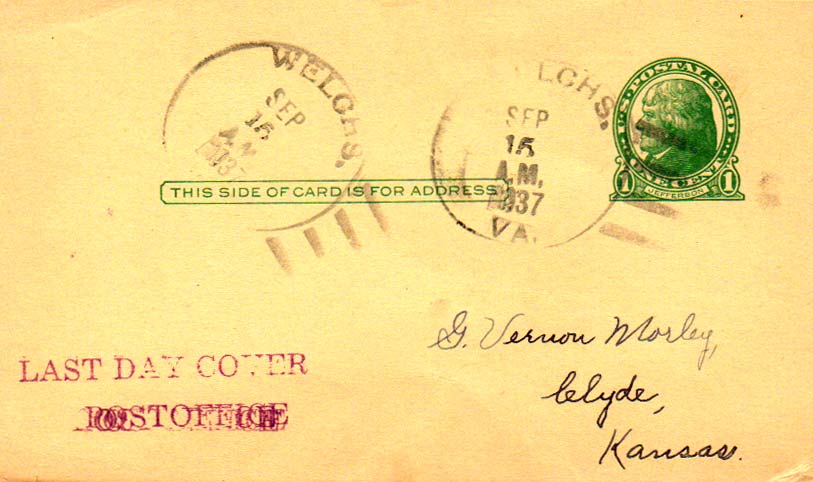 WELCHS,
SEP
15
A.M.
1937
WELCHS,
SEP
15
A.M.
1937
VA.
U.S. POSTAL CARD
ONE CENT
1 JEFFERSON 1
THIS SIDE OF CARD IS FOR ADDRESS
G. Vernon Morley,
Clyde,
Kansas.
LAST DAY COVER
POSTOFFICE